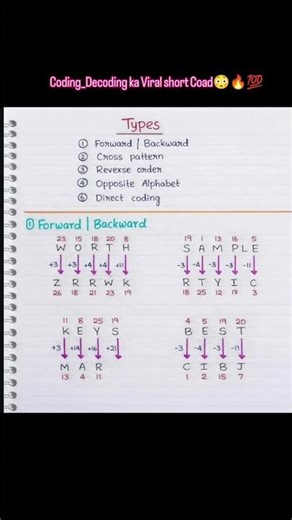 Coding_Decoding ka Viral short Coad😳🔥💯
Types
① Forward | Backward
② Cross pattern
③ Reverse order
④ Opposite Alphabet
⑥ Direct coding
① Forward | Backward
23 15 18 20 8
W O R T H
+3 +3 +4 +4 +11
Z R R W K
26 18 21 23 19
19 1 13 16 5
S A M P L E
-3 -4 -3 -3 -11
R T Y I C
18 25 12 17 3
11 8 25 19
K E Y S
+3 +14 +16 +21
M A R
13 4 11
4 5 19 20
B E S T
-3 -4 -3 -17
C I B J
1 2 15 7